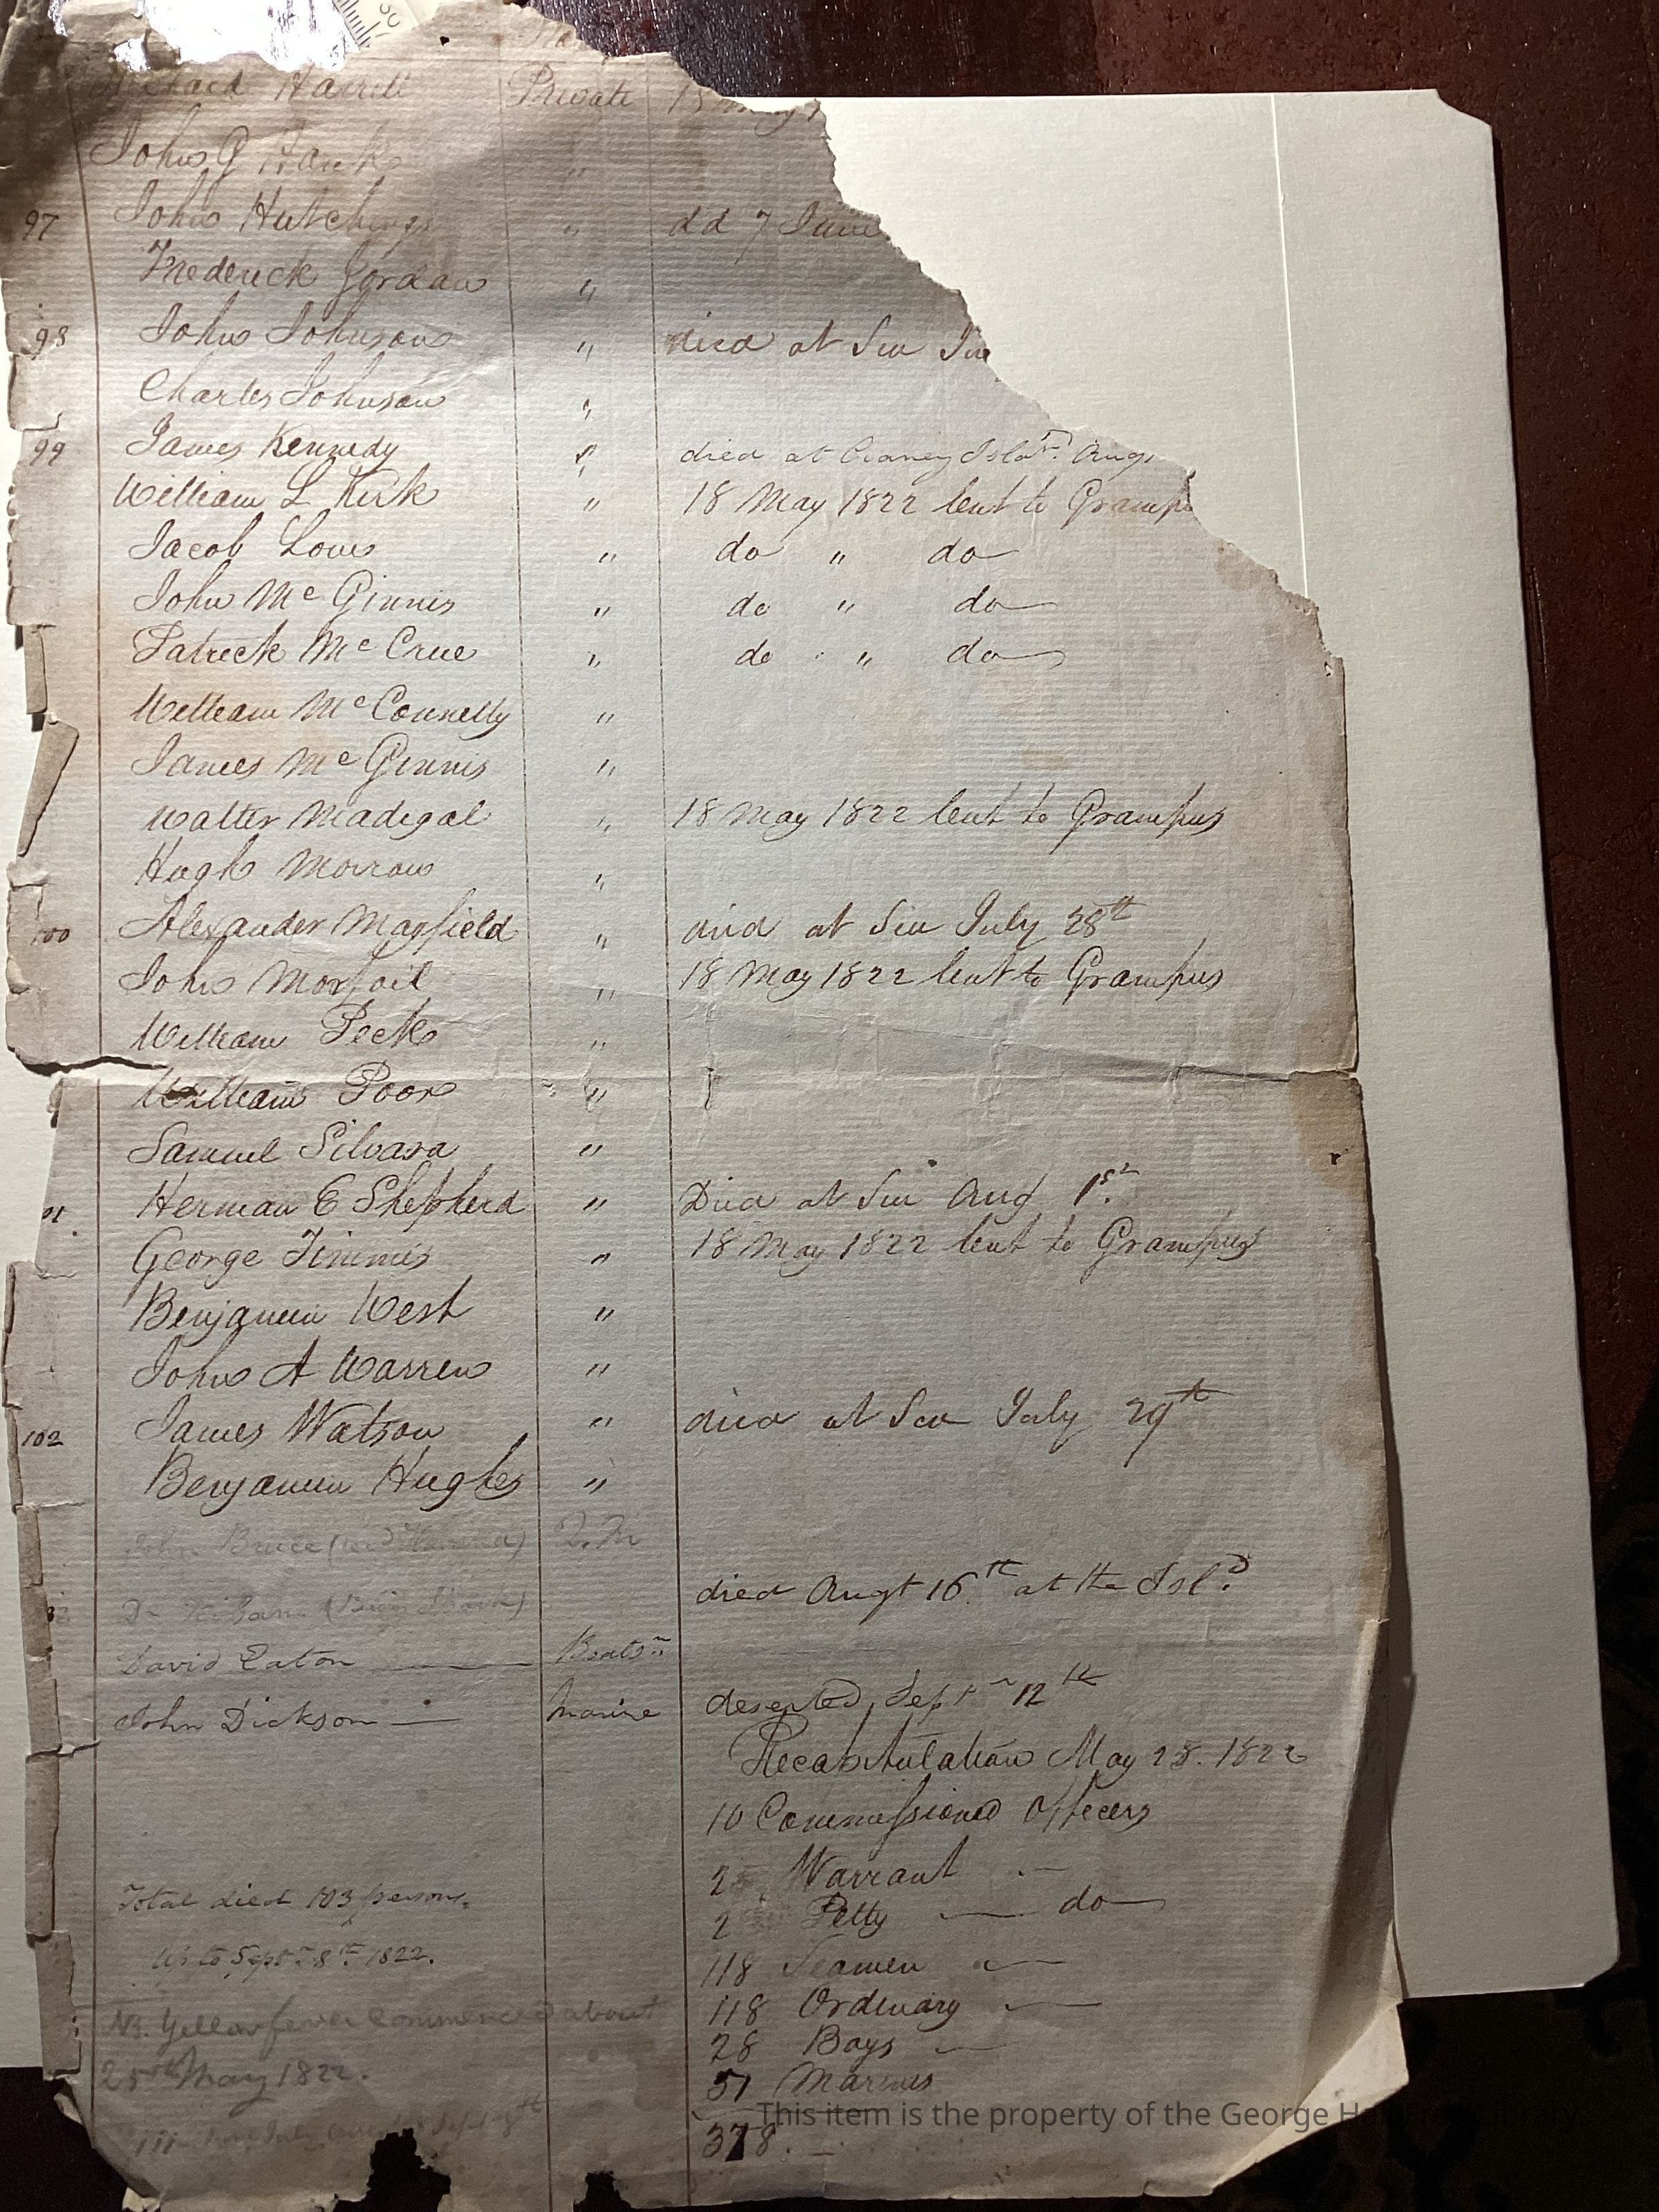 Private 15 May
John G
97 John Hutchings " dd 7 June
Frederick Jordan "
98 John Johnson " died at Sea
Charles Johnson "
99 James Kennedy " died at Craney Isla^nd. Aug
William L Kirk " 18 May 1822 lent to Grampu
Jacob Lows " do " do
John McGinnis " do " do
Patrick McCrue " do " do
William McConnelly "
James McGinnis "
Walter Madigal " 18 May 1822 lent to Grampus
Hugh Morrow "
100 Alexander Mayfield " died at Sea July 28th
John " 18 May 1822 lent to Grampus
William Peck "
William Poor "
Samuel Silvara "
01 Herman E Shepherd " Died at Sea Aug 1st.
George Timmis " 18 May 1822 lent to Grampus
Benjamin West "
John A Warren "
102 James Watson " died at Sea July 29th
Benjamin Hughes "
John Bruce
died Augt 16th at the Isld.
David Eaton — Boats^n
John Dickson — Marine deserted Septr 12th
Recapitulation May 28. 1822
10 Commissioned Officers
Warrant —
Total died 103 persons.
Petty — do
up to Septr 8th 1822.
118 Seamen —
118 Ordinary —
NB. Yellow fever commenced about
28 Boys —
25th May 1822.
51 Marines
Sept 8th
378.
This item is the property of the George Ha